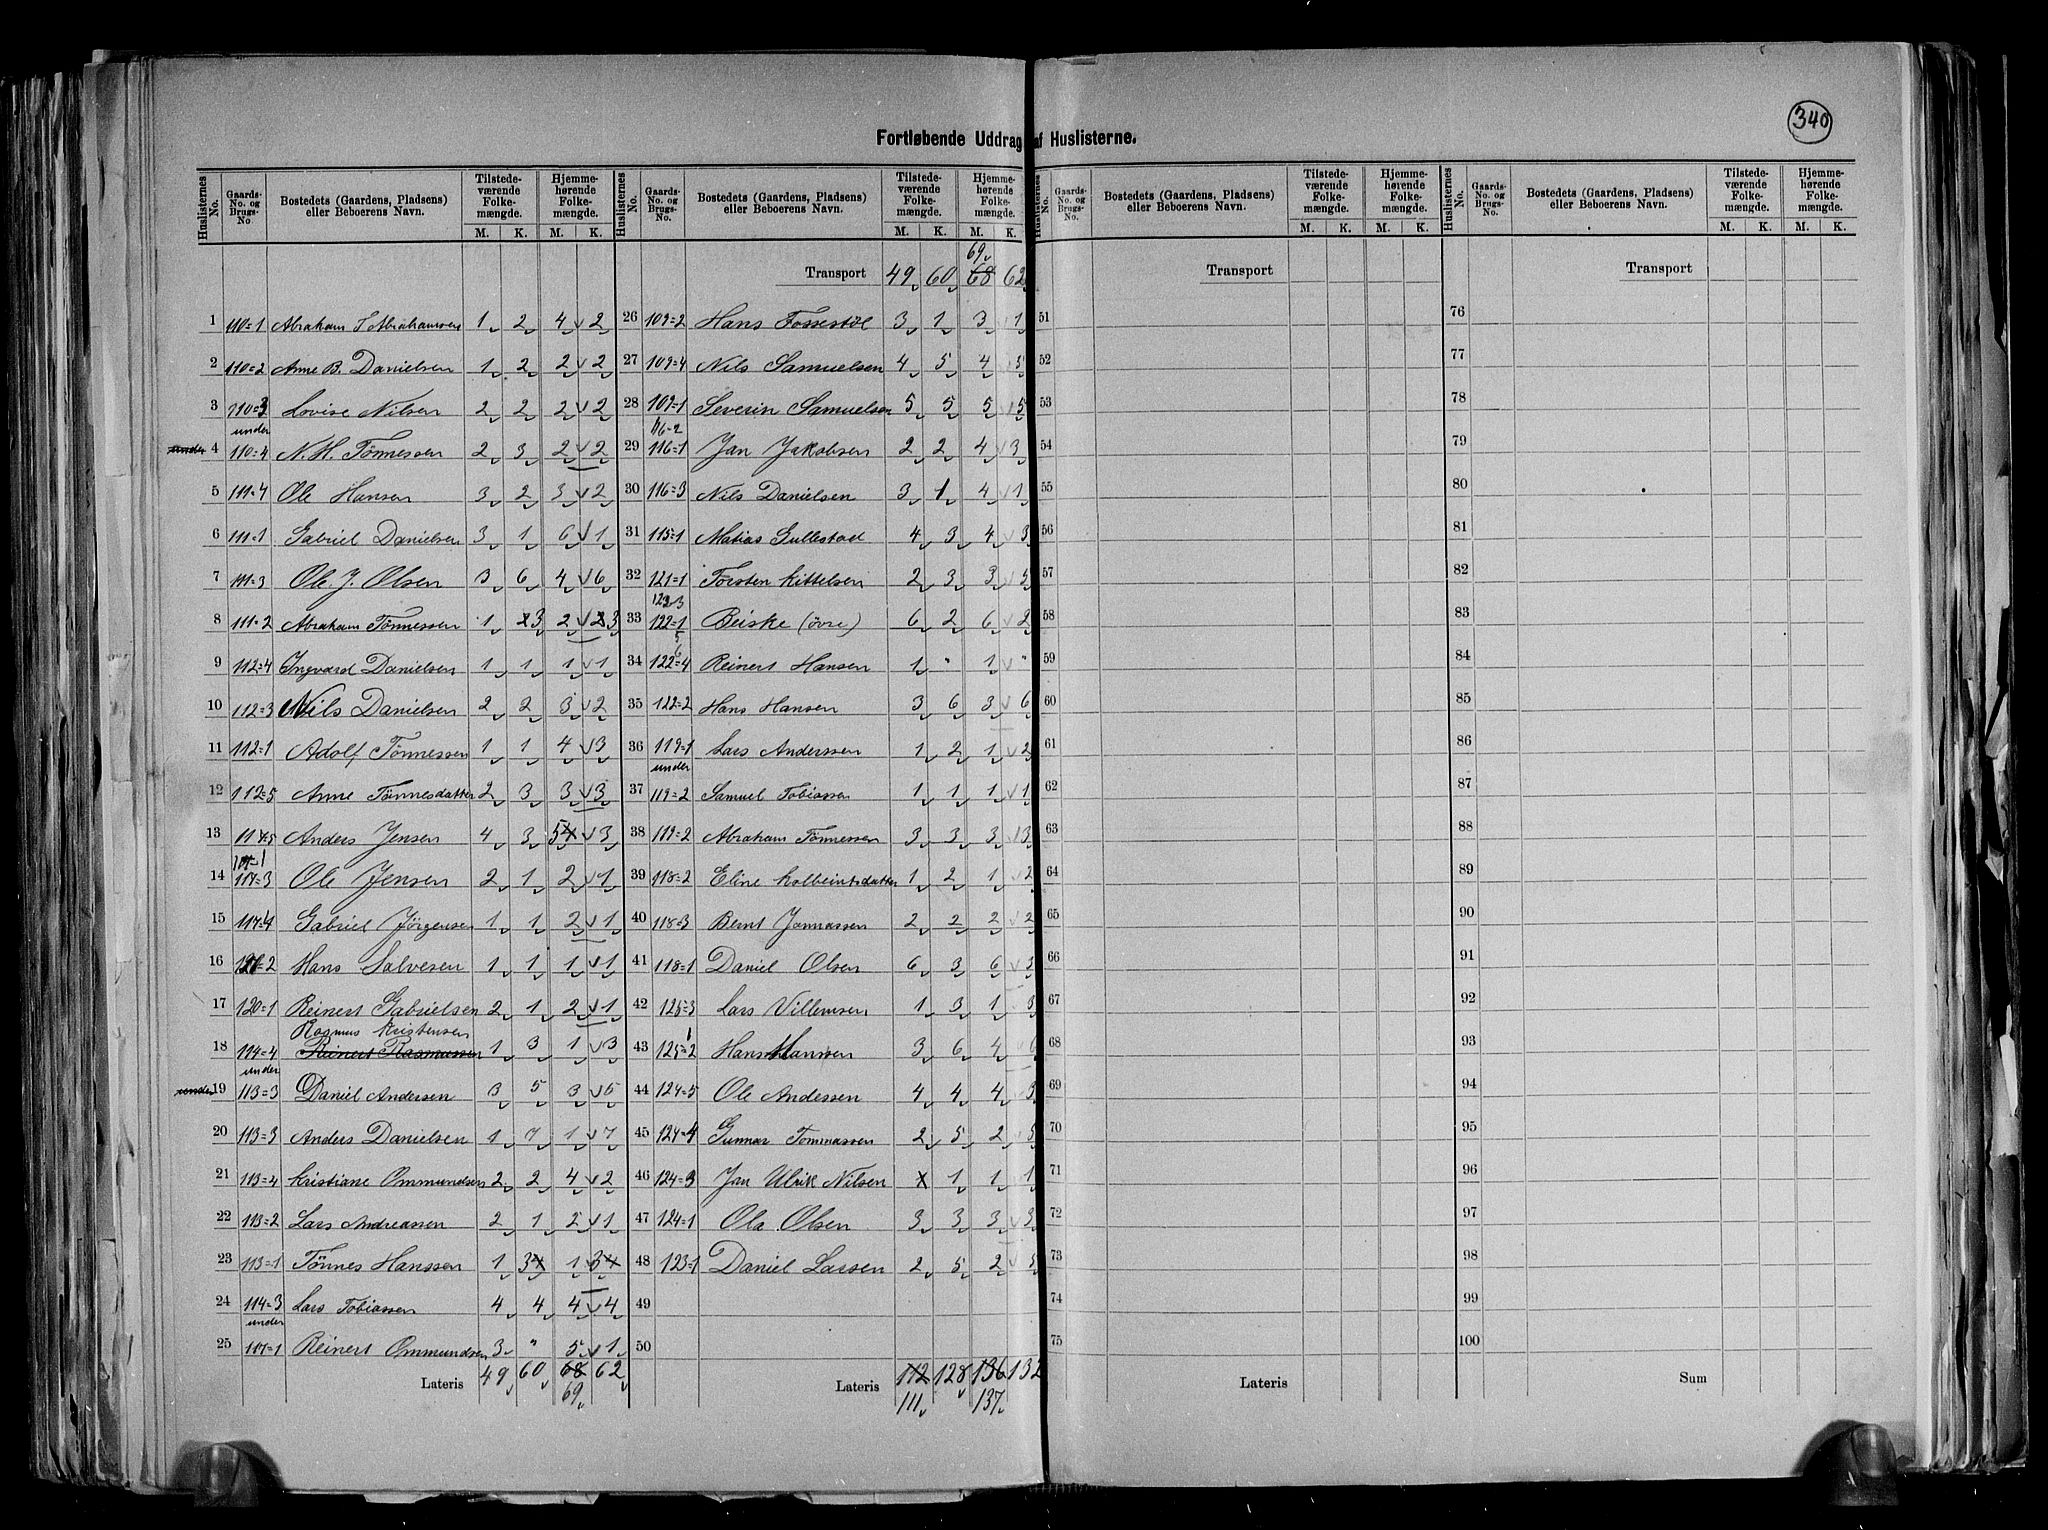 340
Fortløbende Uddrag af Huslisterne.
Huslisternes No. Gaards-No. og Brugs-No. Bostedets (Gaardens, Pladsens) eller Beboerens Navn. Tilstedeværende Folkemængde. M. K. Hjemmehørende Folkemængde. M. K.
1 110=1 Abraham T Abrahamsen 1 2 4 2
2 110=2 Anne B. Danielsen 1 2 2 2
3 110=3 Lovise Nilsen 2 2 2 2
under
under 4 110=4 N. H. Tönnesen 2 3 2 2
5 111=4 Ole Hansen 3 2 3 2
6 111=1 Gabriel Danielsen 3 1 6 1
7 111=3 Ole J. Olsen 3 6 4 6
8 111=2 Abraham Tönnessen 1 3 2 3
9 112=4 Ingvard Danielsen 1 1 1 1
10 112=3 Nils Danielsen 2 2 3 2
11 112=1 Adolf Tönnessen 1 1 4 3
12 112=5 Anne Tönnesdatter 2 3 3 3
13 117=5 Anders Jensen 4 3 5 3
14 117=3 Ole Jensen 2 1 2 1
15 117=4 Gabriel Jörgensen 1 1 2 1
16 Hans Salvesen 1 1 1 1
17 120=1 Reinert Gabrielsen 2 1 2 1
Rasmus Kristensen
18 114=4 Reinert Rasmussen 1 3 1 3
under
under 19 113=3 Daniel Andersen 3 5 3 5
20 113=3 Anders Danielsen 1 7 1 7
21 113=4 Kristiane Ommundsen 2 2 4 2
22 113=2 Lars Andreassen 2 1 2 1
23 113=1 Tönnes Hanssen 1 3 1 3
24 114=3 Lars Tobiassen 4 4 4 4
under
25 117=1 Reinert Ommundsen 3 " 5 1
Lateris 49 60 68 62
69
Huslisternes No. Gaards-No. og Brugs-No. Bostedets (Gaardens, Pladsens) eller Beboerens Navn. Tilstedeværende Folkemængde. M. K. Hjemmehørende Folkemængde. M. K.
69
Transport 49 60 68 62
26 109=2 Hans Fossestöl 3 1 3 1
27 109=4 Nils Samuelsen 4 5 4 5
28 109=1 Severin Samuelsen 5 5 5 5
116=2
29 116=1 Jan Jakobsen 2 2 4 3
30 116=3 Nils Danielsen 3 1 4 1
31 115=1 Matias Gullestad 4 3 4 3
32 121=1 Torsten Kittelsen 2 3 3 5
33 122=1 Beiske (övre) 6 2 6 2
34 122=4 Reinert Hansen 1 " 1 "
35 122=2 Hans Hansen 3 6 3 6
36 119=1 Lars Anderssen 1 2 1 2
under
37 119=2 Samuel Tobiassen 1 1 1 1
38 119=2 Abraham Tönnessen 3 3 3 3
39 118=2 Eline Kolbeintsdatter 1 2 1 2
40 118=3 Bernt Jonnassen 2 2 2 2
41 118=1 Daniel Olsen 6 3 6 3
42 125=3 Lars Villemsen 1 3 1 3
43 125=2 Hans Hansen 3 6 4 6
44 124=5 Ole Andessen 4 4 4 3
45 124=4 Gunnar Tommassen 2 5 2 5
46 124=3 Jan Ulrik Nilsen x 1 1 1
47 124=1 Ola Olsen 3 3 3 3
48 123=1 Daniel Larsen 2 5 2 5
49
50
Lateris 112 128 136 132
111 137
Huslisternes No. Gaards-No. og Brugs-No. Bostedets (Gaardens, Pladsens) eller Beboerens Navn. Tilstedeværende Folkemængde. M. K. Hjemmehørende Folkemængde. M. K.
Transport
51
52
53
54
55
56
57
58
59
60
61
62
63
64
65
66
67
68
69
70
71
72
73
74
75
Lateris
Huslisternes No. Gaards-No. og Brugs-No. Bostedets (Gaardens, Pladsens) eller Beboerens Navn. Tilstedeværende Folkemængde. M. K. Hjemmehørende Folkemængde. M. K.
Transport
76
77
78
79
80
81
82
83
84
85
86
87
88
89
90
91
92
93
94
95
96
97
98
99
100
Sum